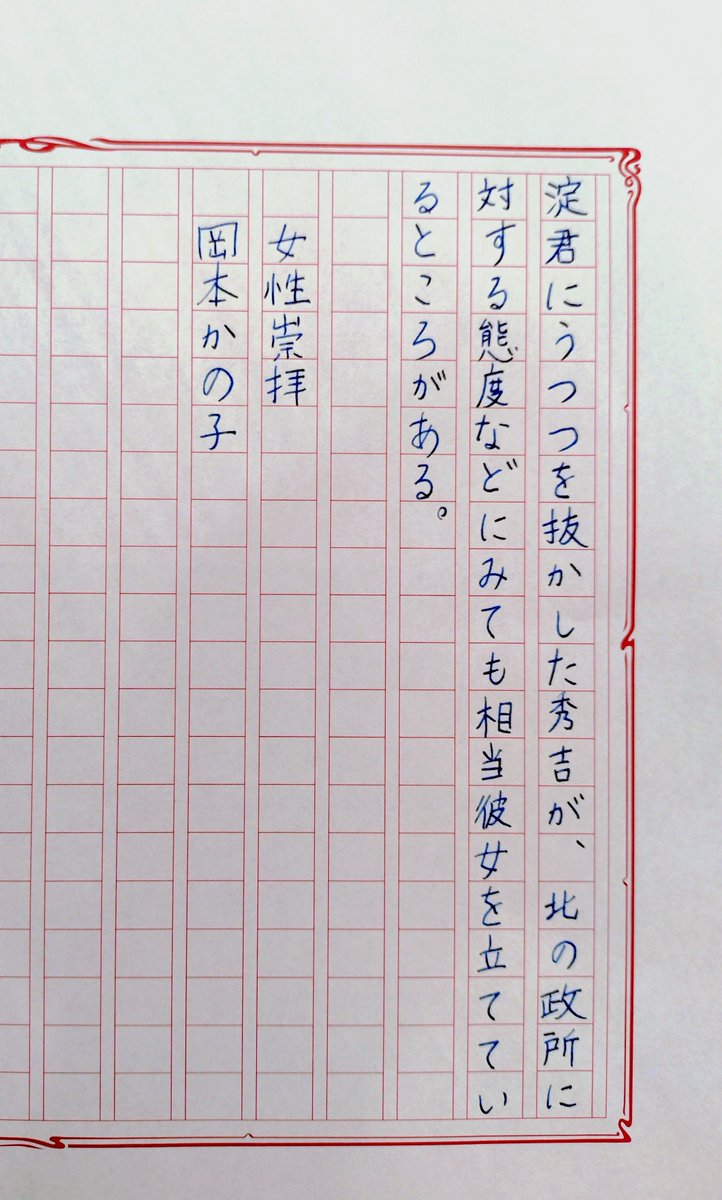 淀君にうつつを抜かした秀吉が、北の政所に
対する態度などにみても相当彼女を立ててい
るところがある。
女性崇拝
岡本かの子